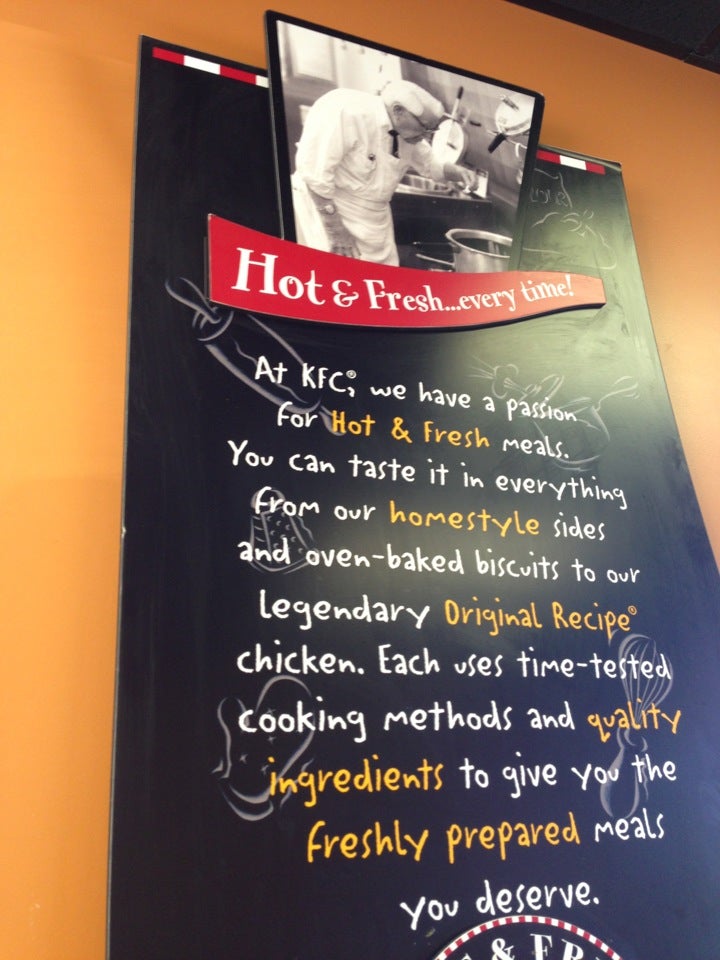 Hot & Fresh...every time!
At KFC®, we have a passion
for Hot & Fresh meals.
You can taste it in everything
from our homestyle sides
and oven-baked biscuits to our
legendary Original Recipe®
chicken. Each uses time-tested
cooking methods and quality
ingredients to give you the
freshly prepared meals
you deserve.
& FR